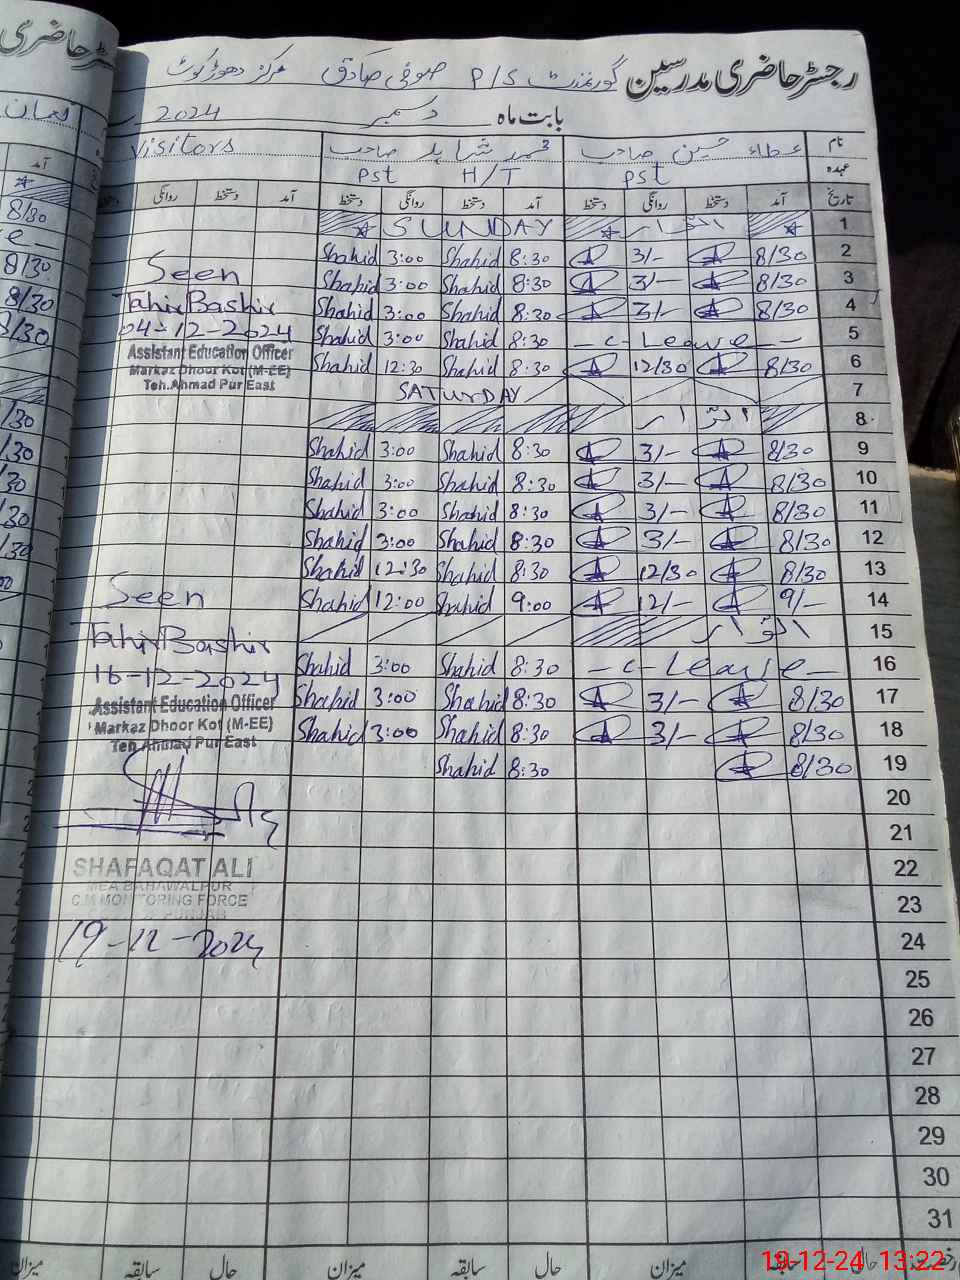 رجسٹر حاضری مدرسین گورنمنٹ P/S صوفی صادق مرکز دھوڑ کوٹ
بابت ماہ دسمبر 2024
نام عطاء حسین صاحب محمد شاہد صاحب visitors
عہدہ PST H/T PST
تاریخ آمد دستخط روانگی دستخط آمد دستخط روانگی دستخط آمد دستخط روانگی دستخط
1 اتوار SUNDAY
2 8/30 3/- 8:30 Shahid 3:00 Shahid
3 8/30 3/- 8:30 Shahid 3:00 Shahid
4 8/30 3/- 8:30 Shahid 3:00 Shahid
5 - C - Leave - 8:30 Shahid 3:00 Shahid
6 8/30 12/30 8:30 Shahid 12:30 Shahid
7 SATURDAY
8 اتوار
9 8/30 3/- 8:30 Shahid 3:00 Shahid
10 8/30 3/- 8:30 Shahid 3:00 Shahid
11 8/30 3/- 8:30 Shahid 3:00 Shahid
12 8/30 3/- 8:30 Shahid 3:00 Shahid
13 8/30 12/30 8:30 Shahid 12:30 Shahid
14 9/- 12/- 9:00 Shahid 12:00 Shahid
15 اتوار
16 - C - Leave - 8:30 Shahid 3:00 Shahid
17 8/30 3/- 8:30 Shahid 3:00 Shahid
18 8/30 3/- 8:30 Shahid 3:00 Shahid
19 8/30 8:30 Shahid
20
21
22
23
24
25
26
27
28
29
30
31
Seen
Tahir Bashir
04-12-2024
Assistant Education Officer
Markaz Dhoor Kot (M-EE)
Teh. Ahmad Pur East
Seen
Tahir Bashir
16-12-2024
Assistant Education Officer
Markaz Dhoor Kot (M-EE)
Teh. Ahmad Pur East
SHAFAQAT ALI
MEA BAHAWALPUR
C.M MONITORING FORCE
PUNJAB
19-12-2024
حال سابقہ میزان حال سابقہ میزان حال سابقہ میزان
8/30
8/30
8/30
8/30
19-12-24 13:22